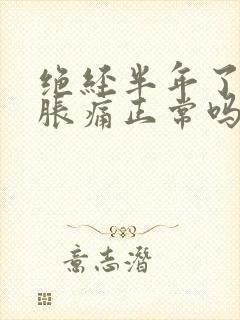 绝经半年了
胀痛正常吗
意志潜